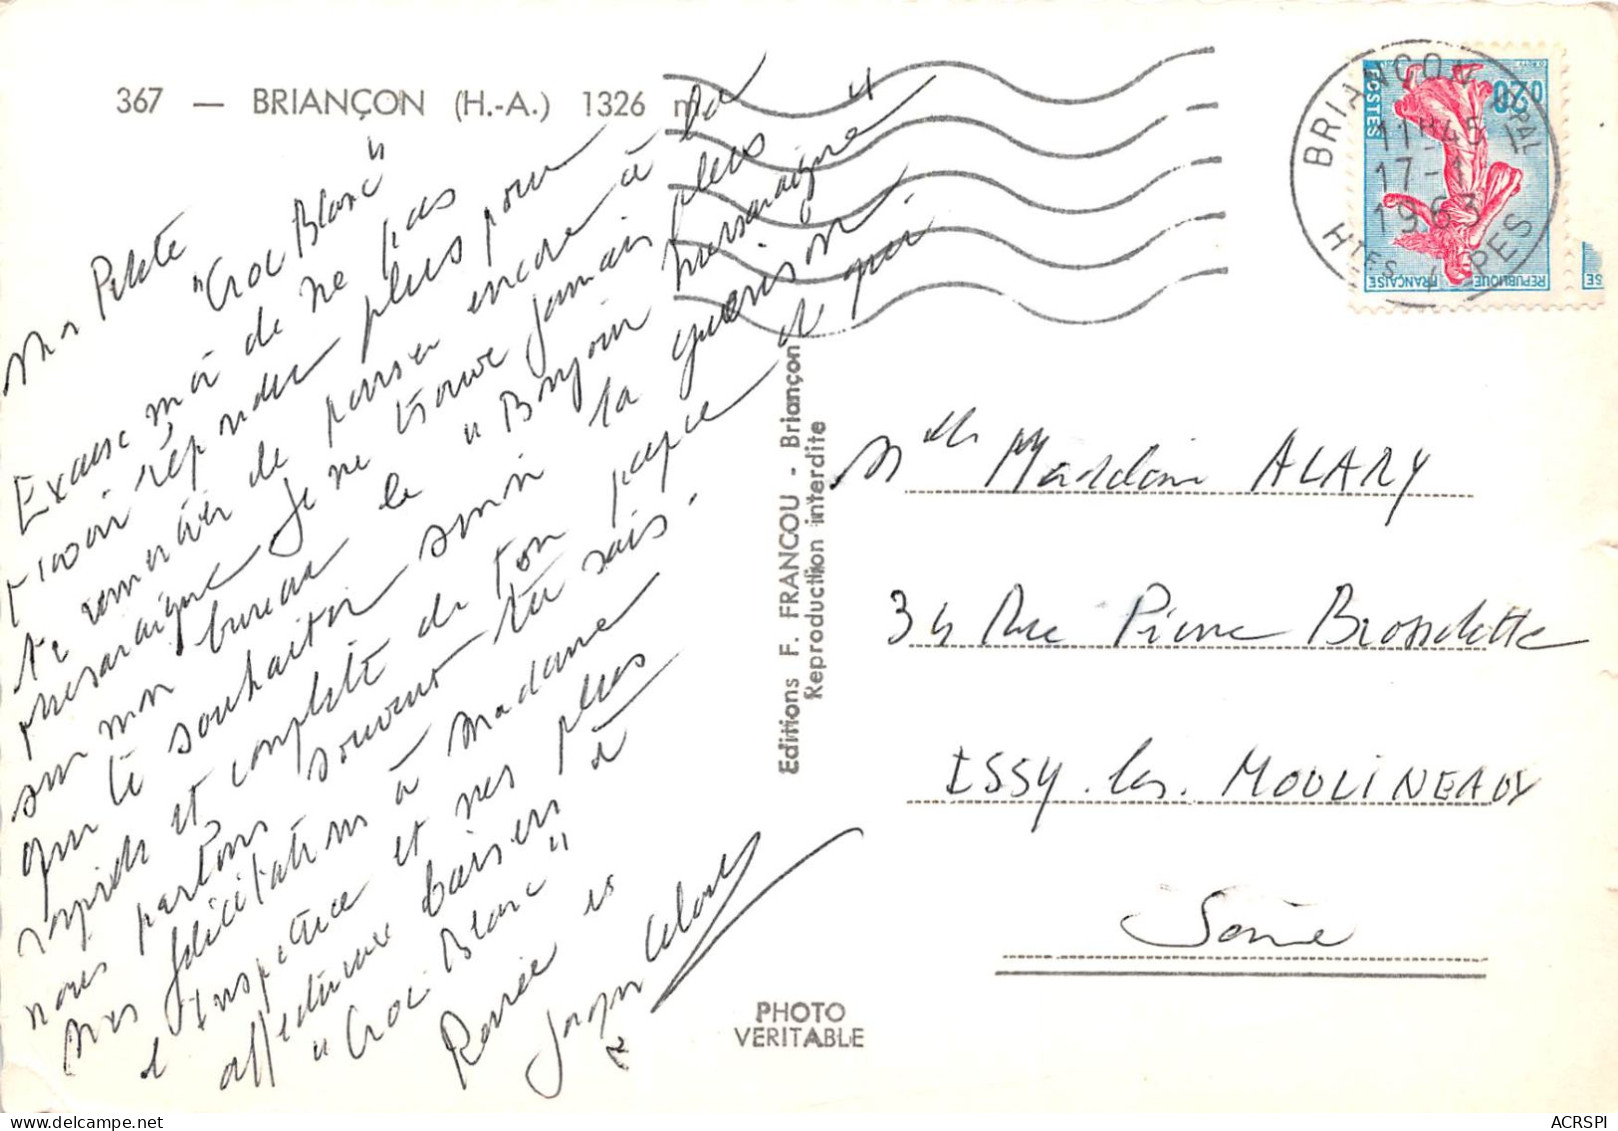 367 — BRIANÇON (H.-A.) 1326 m.
Ma Pilote
"Croc Blanc"
Excuse moi de ne pas
t'avoir répondu plus pour
te remercier de penser encore à la
presaraigne je ne trouve jamais plus
sur mon bureau le "Bonjour presaraigne"
que te souhaiter sinon la guérison
rapide et complète de ton et qui
nous partons souvent tu sais.
Nos félicitations à Madame
l'Inspectrice et nos plus
affectueux baisers à
"Croc Blanc"
Renée et
Jacques
Editions F. FRANCOU - Briançon
Reproduction interdite
PHOTO
VERITABLE
BRIANÇON PPAL
11H45
17-1
1963
HTES ALPES
0,20
POSTES
REPUBLIQUE FRANÇAISE
SE
Mlle ALARY
34 Rue Pierre Brossolette
ISSY-les-MOULINEAUX
Seine
ACRSPI